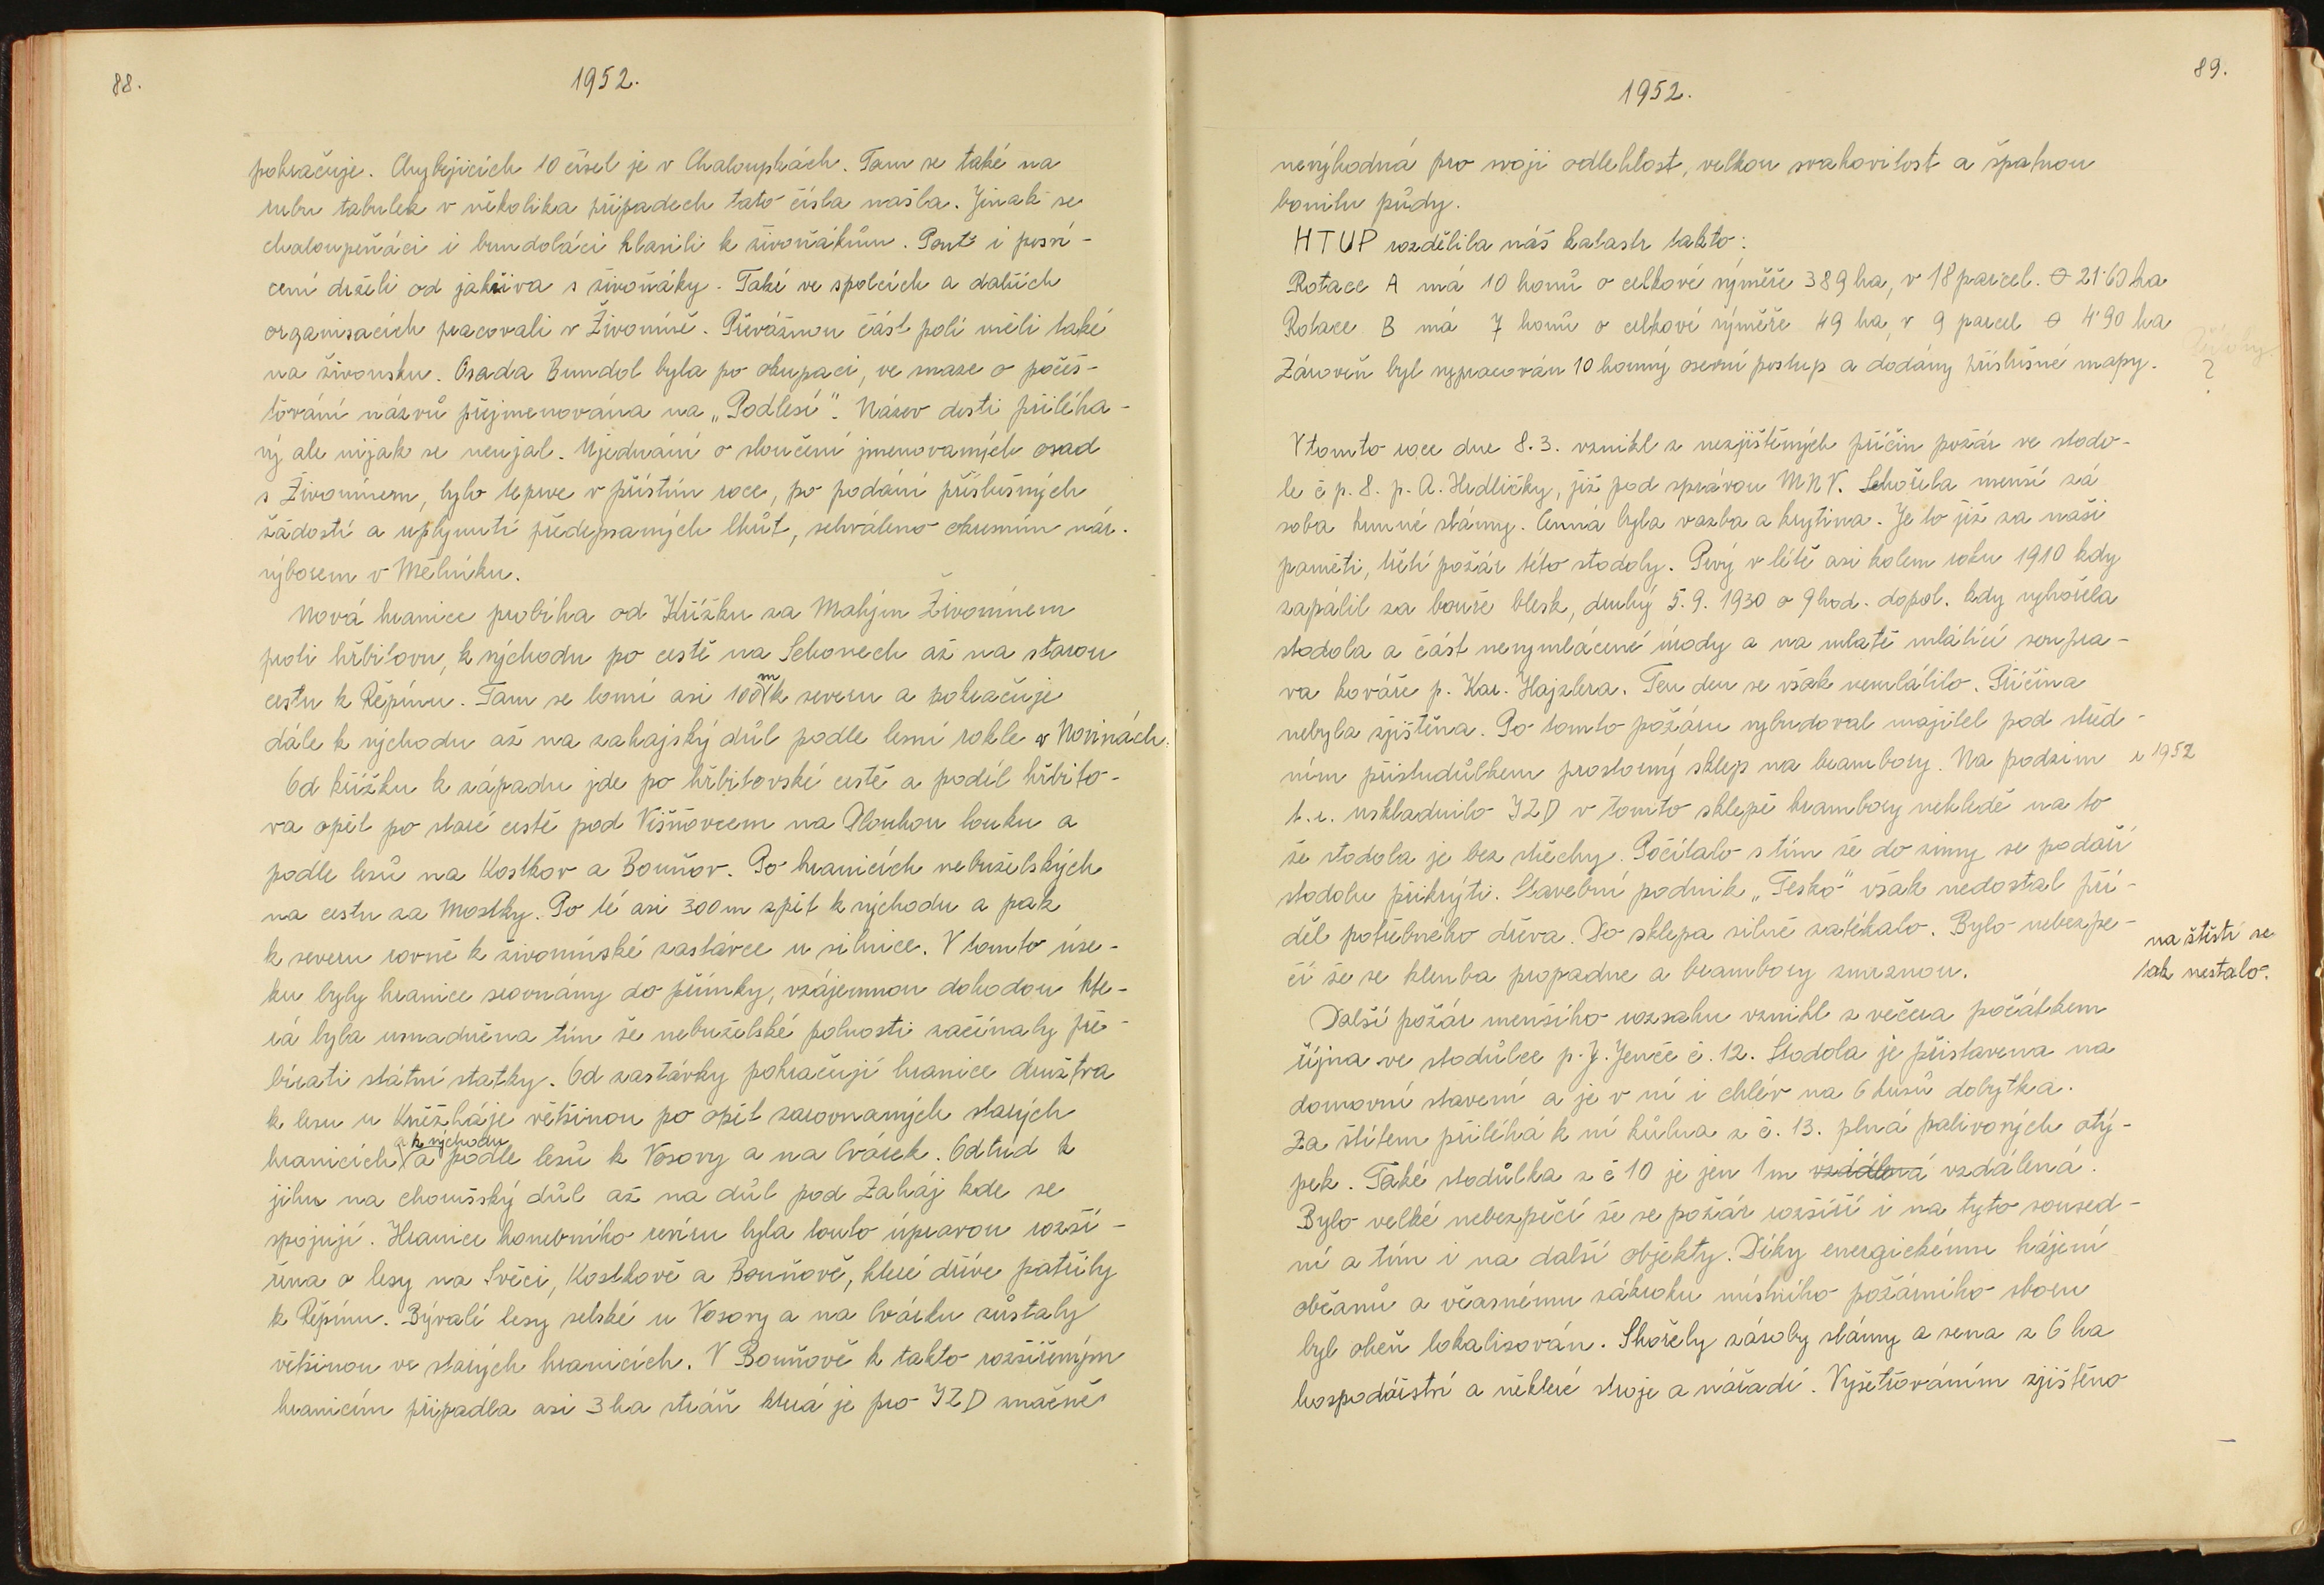 88.
1952.
pokračuje. Chybějících 10 čísel je v Chaloupkách. Tam se také na
rubu tabulek v několika případech tato čísla našla. Jinak se
chaloupeňáci i bundoláci hlasili k živoňákům. Pouť i posví-
cení drželi od jakživa s živoňáky. Také ve spolcích a dalších
organisacích pracovali v Živoníně. Převážnou část polí měli také
na živonsku. Osada Bundol byla po okupaci, ve snaze o počeš-
ťování názvů přejmenována na „Podlesí". Název dosti přiléha-
vý ale nijak se neujal. Ujednání o sloučení jmenovaných osad
s Živonínem, bylo teprve v příštím roce, po podání příslušných
žádostí a uplynutí předepsaných lhůt, schváleno okresním nár.
výborem v Mělníku.
Nová hranice probíha od Křížku za Malým Živonínem
proti hřbitovu, k východu po cestě na Schonech až na starou
cestu k Řepínu. Tam se lomí asi 100 m k severu a pokračuje
dále k východu až na zahajský důl podle lesní rokle v Novinách.
Od křížku k západu jde po hřbitovské cestě a podél hřbito-
va opět po staré cestě pod Višňovcem na Dlouhou louku a
podle lesů na Kostkov a Bouňov. Po hranicích nebuželských
na cestu za Mostky. Po té asi 300 m zpět k východu a pak
k severu rovně k živonínské zastávce u silnice. V tomto úse-
ku byly hranice srovnány do přímky, vzájemnou dohodou kte-
rá byla usnadněna tím že nebuželské polnosti začínaly pře-
bírati státní statky. Od zastávky pokračují hranice družstva
k lesu u Kněžháje většinou po opět zarovnaných starých
hranicích a k východu a podle lesů k Vosovy a na Cvárek. Odtud k
jihu na choušský důl až na důl pod Zaháj kde se
spojují. Hranice honebního revíru byla touto úpravou rozší-
řena o lesy na Svěci, Kostkově a Bouňově, které dříve patřily
k Řepínu. Bývalé lesy selské u Vosovy a na Cvárku zůstaly
většinou ve starých hranicích. V Bouňově k takto rozšířeným
hranicím připadla asi 3 ha stráň která je pro JZD značně
89.
1952.
nevýhodná pro svoji odlehlost, velkou svahovitost a špatnou
bonitu půdy.
HTUP rozdělila náš katastr takto:
Rotace A má 10 honů o celkové výměře 389 ha, v 18 parcel. ⌀ 21˙60 ha
Rotace B má 7 honů o celkové výměře 49 ha, v 9 parcel ⌀ 4˙90 ha
Zároveň byl vypracován 10 honný osevní postup a dodány příslušné mapy.
?
V tomto roce dne 8.3. vznikl z nezjištěných příčin požár ve stodo-
le č p. 8. p. A. Hrdličky, již pod správou MNV. Schořela menší zá
soba krmné slámy. Cenná byla vazba a krytina. Je to již za naší
paměti, třetí požár této stodoly. Prvý v létě asi kolem roku 1910 kdy
zapálil za bouře blesk, druhý 5.9.1930 o 9 hod. dopol. kdy vyhořela
stodola a část nevymlácené úrody a na mlatě mlátící soupra-
va kováře p. Kar. Hajzlera. Ten den se však nemlátilo. Příčina
nebyla zjištěna. Po tomto požáru vybudoval majitel pod střed-
ním přístudůlkem prostorný sklep na brambory. Na podzim r 1952
t. r. uskladnilo JZD v tomto sklepě brambory nehledě na to
že stodola je bez střechy. Počítalo s tím že do zimy se podaří
stodolu přikrýti. Stavební podnik „Tesko" však nedostal pří-
děl potřebného dřeva. Do sklepa silně zatékalo. Bylo nebezpe-
čí že se klenba propadne a brambory zmrznou.
na štěstí se
tak nestalo.
Další požár menšího rozsahu vznikl z večera počátkem
října ve stodůlce p. J. Jenče č. 12. Stodola je přistavena na
domovní stavení a je v ní i chlév na 6 kusů dobytka.
Za štítem přiléhá k ní kůlna z č. 13. plná palivových otý-
pek. Také stodůlka z č 10 je jen 1 m vzdálená vzdálená.
Bylo velké nebezpečí že se požár rozšíří i na tyto soused-
ní a tím i na další objekty. Díky energickému hájení
občanů a včasnému zákroku místního požárního sboru
byl oheň lokalisován. Shořely zásoby slámy a sena z 6 ha
hospodářství a některé stroje a nářadí. Vyšetřováním zjištěno